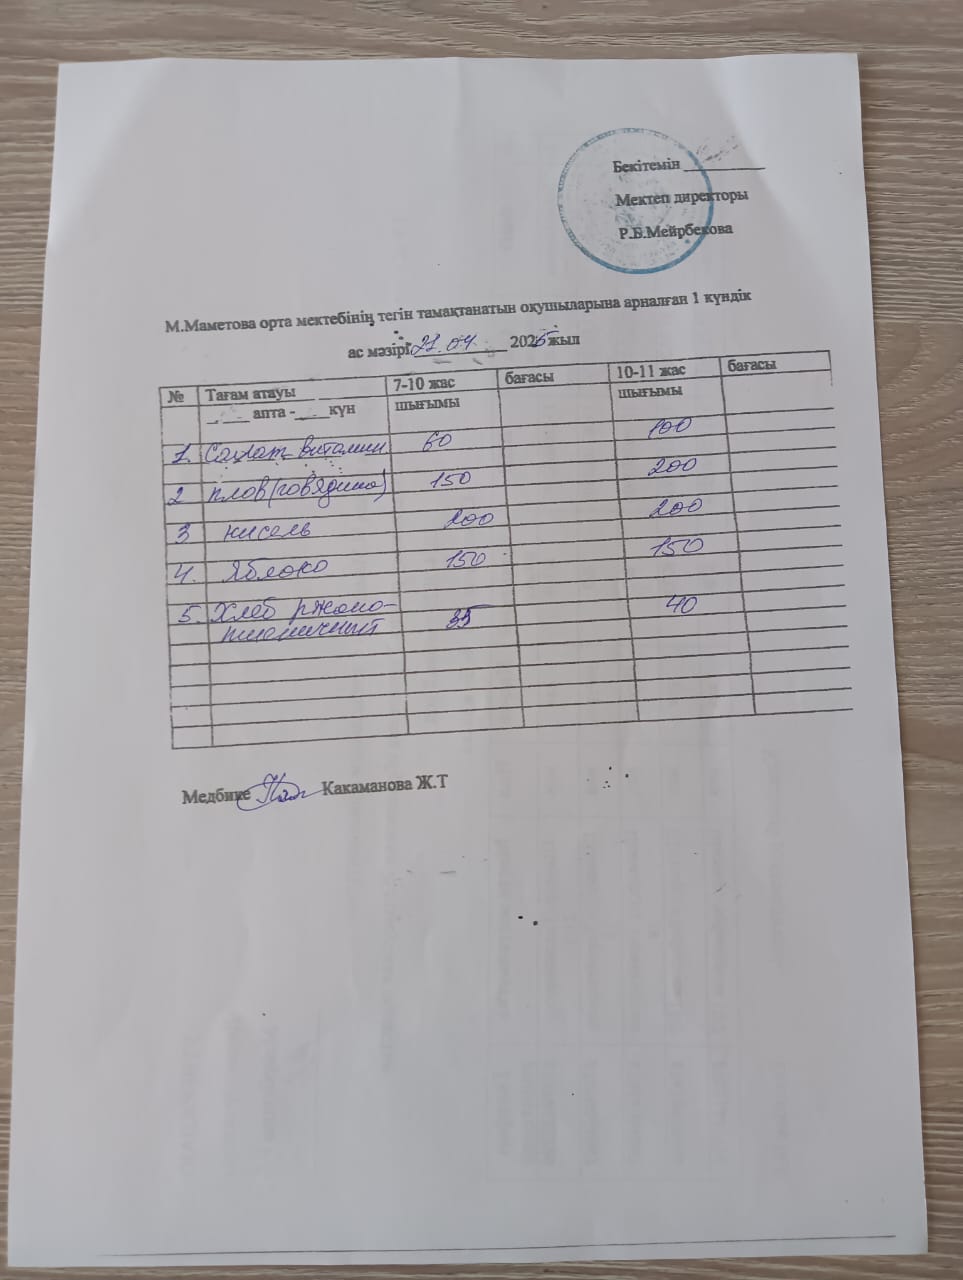 Бекітемін ___________
Мектеп директоры
Р.Б.Мейрбекова
М.Маметова орта мектебінің тегін тамақтанатын оқушыларына арналған 1 күндік
ас мәзірі 21.04 2025 жыл
№ Тағам атауы 7-10 жас бағасы 10-11 жас бағасы
_____ апта -_____күн шығымы шығымы
1. Салат витамин 60 100
2 плов(говядина) 150 200
3 кисель 200 200
4. Яблоко 150 150
5. Хлеб ржано- 35 40
пшеничный
Медбике Какаманова Ж.Т